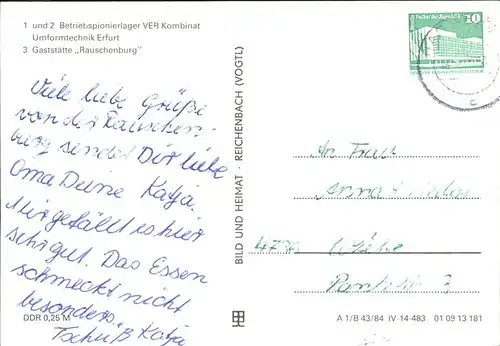 1 und 2 Betriebspionierlager VER Kombinat
Umformtechnik Erfurt
3 Gaststätte „Rauschenburg"
Palast der Republik
10
DDR
Viele liebe Grüße
von der Rauschen-
burg sendet Dir liebe
Oma Deine Katja.
Mir gefällt es hier
sehr gut. Das Essen
schmeckt nicht
besonders.
Tschüß Katja
BILD UND HEIMAT · REICHENBACH (VOGTL)
An Frau
DDR 0,25 M
A 1/B 43/84 IV-14-483 01 09 13 181